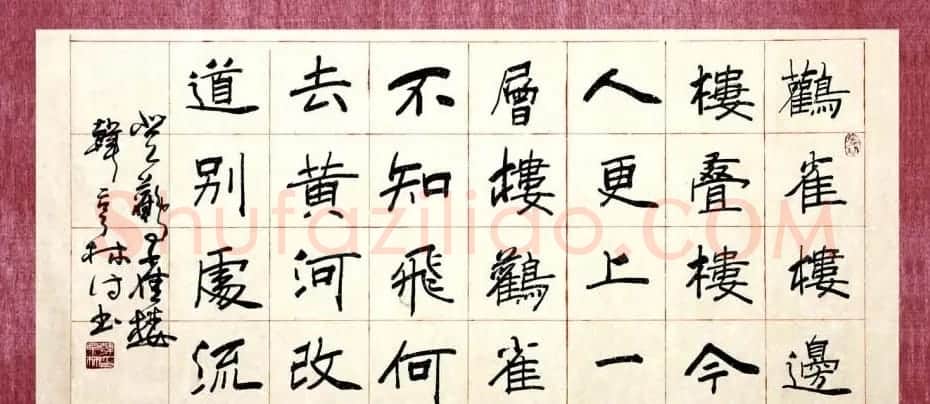 鸛雀樓邊
樓叠樓今
人更上一
層樓鸛雀
不知飛何
去黃河改
道别處流
登鸛雀樓
韓亨林诗书
ShufaziliaO.COM